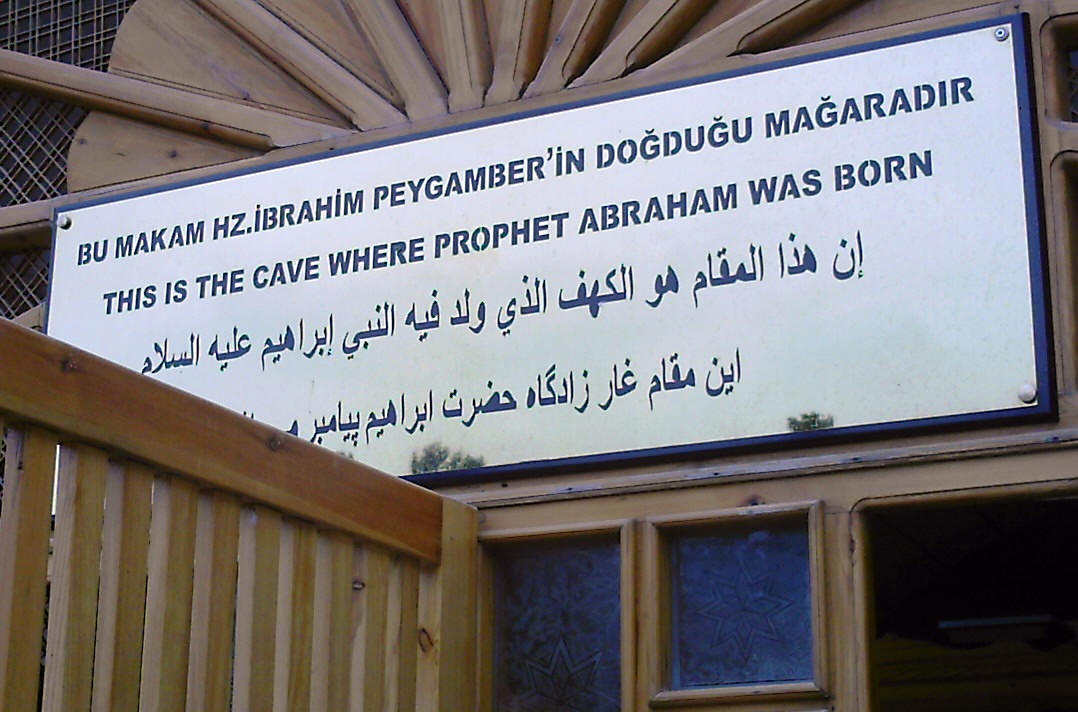 BU MAKAM HZ.İBRAHİM PEYGAMBER'İN DOĞDUĞU MAĞARADIR
THIS IS THE CAVE WHERE PROPHET ABRAHAM WAS BORN
إن هذا المقام هو الكهف الذي ولد فيه النبي إبراهيم عليه السلام
این مقام غار زادگاه حضرت ابراهیم پیامبر